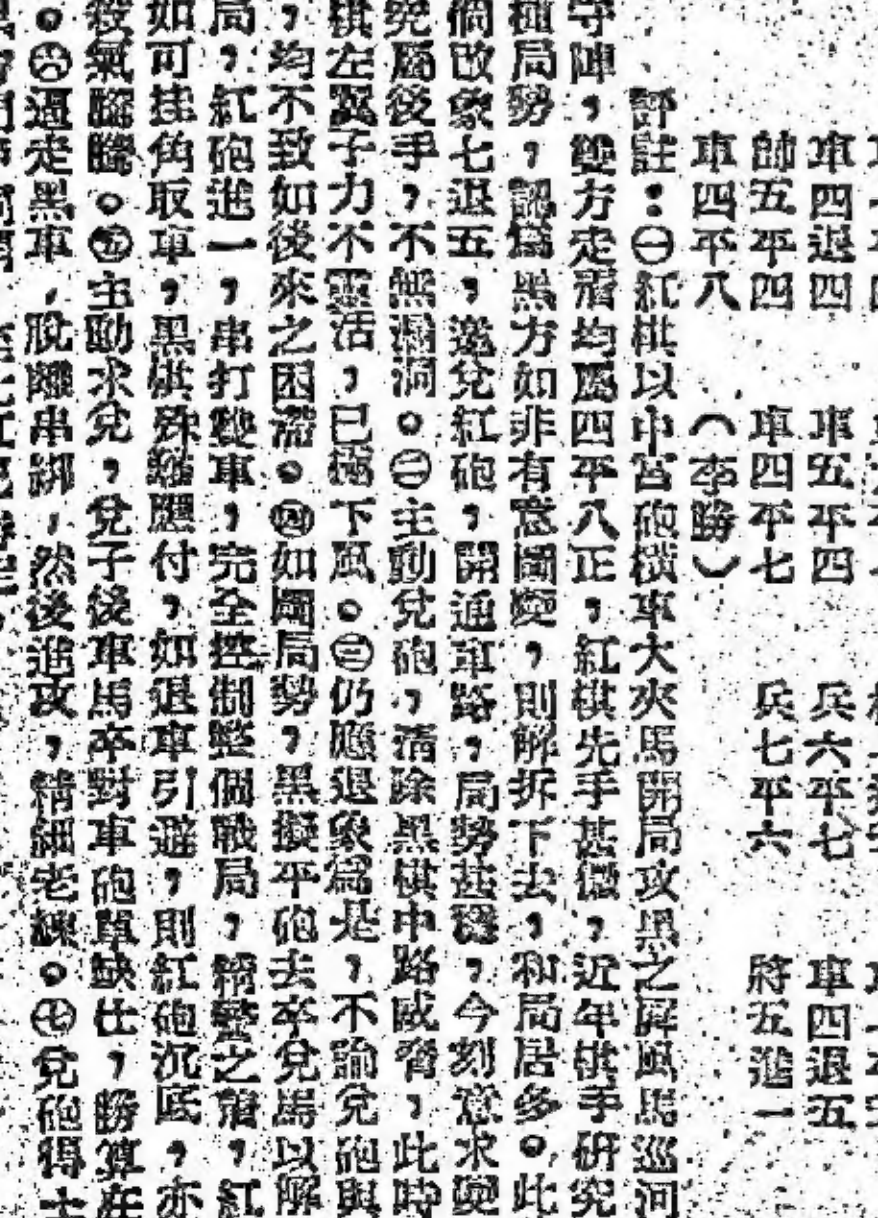 車四退四　車五平四　兵六平七　車四退五
帥五平四　車四平七　兵七平六　將五進一
車四平八　（李勝）
評註：㊀紅棋以中宮砲橫車大夾馬開局攻黑之屏風馬巡河
守陣，雙方走着均屬四平八正，紅棋先手甚微，近年棋手研究
種局勢，認爲黑方如非有意圖變，則解拆下去，和局居多。此
個改象七退五，邀兌紅砲，開通車路，局勢甚穩，今刻意求變
究屬後手，不無漏洞。㊁主動兌砲，清除黑棋中路威脅，此時
棋左翼子力不靈活，已極下風。㊂仍應退象爲是，不論兌砲與
，均不致如後來之困滯。㊃如圖局勢，黑擬平砲去卒兌馬以解
局，紅砲進一，串打雙車，完全控制整個戰局，精警之着，紅
如可挂角取車，黑棋殊難應付，如退車引避，則紅砲沉底，亦
殺氣騰騰。㊄主動求兌，兌子後車馬卒對車砲單缺仕，勝算在
。㊅過走黑車，脫離串綁，然後進攻，精細老練。㊆兌砲得士